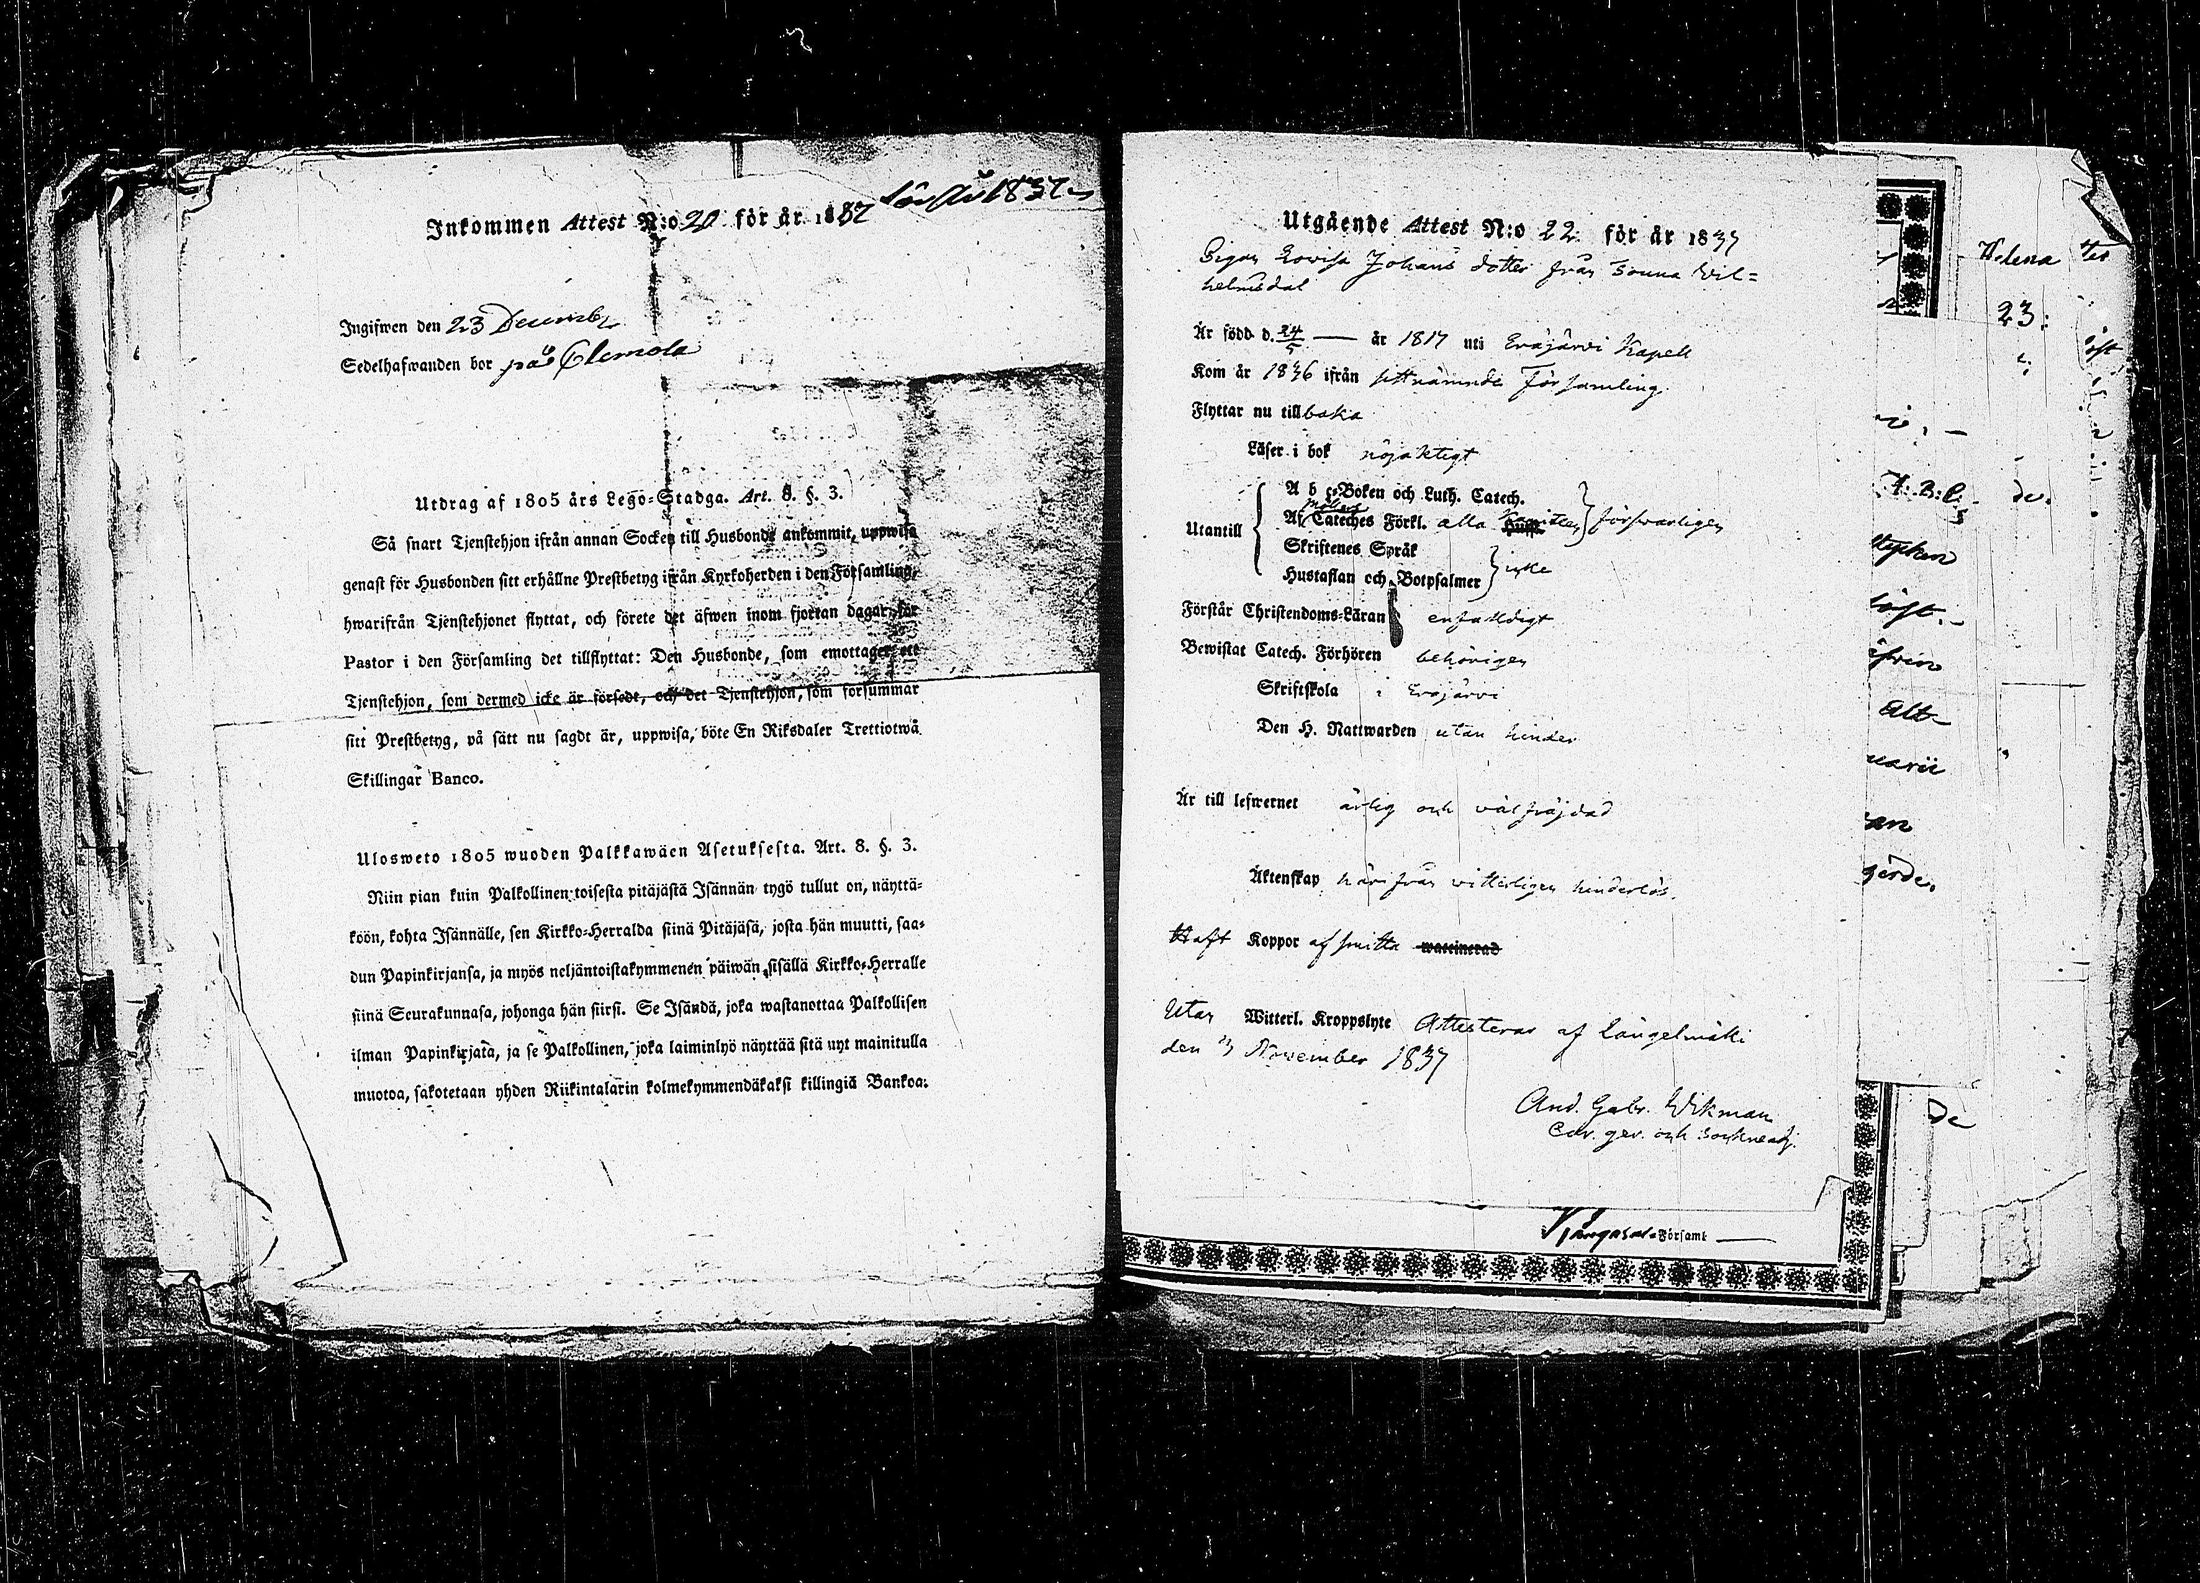 Inkommen Attest N:o 20 för år 1837
Ingifwen den 23 Decemb
Sedelhafwanden bor på Clemola
Utdrag af 1805 års Lego-Stadga. Art. 8. §. 3.
Så snart Tjenstehjon ifrån annan Socken till Husbonde ankommit, uppwise
genast för Husbonden sitt erhållne Prestbetyg ifrån Kyrkoherden i den Församling,
hwarifrån Tjenstehjonet flyttat, och förete det äfwen inom fjortan dagar för
Pastor i den Församling det tillflyttat: Den Husbonde, som emottager ett
Tjenstehjon, som dermed icke är försedt, och det Tjenstehjon, som försummar
sitt Prestbetyg, på sätt nu sagdt är, uppwisa, böte En Riksdaler Trettiotwå
Skillingar Banco.
Ulosweto 1805 wuoden Palkkawäen Asetuksesta. Art. 8. §. 3.
Niin pian kuin Palkollinen toisesta pitäjästä Isännän tygö tullut on, näyttä-
köön, kohta Isännälle, sen Kirkko-Herralda siinä Pitäjäsä, josta hän muutti, saa-
dun Papinkirjansa, ja myös neljäntoistakymmenen päiwän sisällä Kirkko-Herralle
siinä Seurakunnasa, johonga hän siirsi. Se Isändä, joka wastanottaa Palkollisen
ilman Papinkirjata, ja se Palkollinen, joka laiminlyö näyttää sitä nyt mainitulla
muotoa, sakotetaan yhden Riikintalarin kolmekymmendäkaksi killingiä Bankoa.
Utgående Attest N:o 22 för år 1837
Pigan Lovisa Johans dotter från Sonna Wil=
helmsdal
Är född d. 24/5 — år 1817 uti Eräjärvi Kapell
Kom år 1836 ifrån sittnämnde Församling
Flyttar nu tillbaka
Läser i bok nöjaktigt
Utantill
A b c-Boken och Luth. Catech.
Af Cateches Förkl. alla försvarligen
Skriftenes Språk
Hustaflan och Botpsalmer icke
Förstår Christendoms-Läran enfaldigt
Bewistat Catech. Förhören behörigen
Skriftskola i Eräjärvi
Den H. Nattwarden utan hinder
Är till lefwernet ärlig och välfräjdad
Äktenskap härifrån vitterligen hinderlös.
Haft Koppor af smitta waccinerad
Utan Witterl. Kroppslyte Attesterar af Längelmäki
den 13 November 1837
And. Gabr. Wikman
och Sockneadj.
Kangasala-Församl
Helena
23:
A:B:C:
de.
Alt-
uarii
De